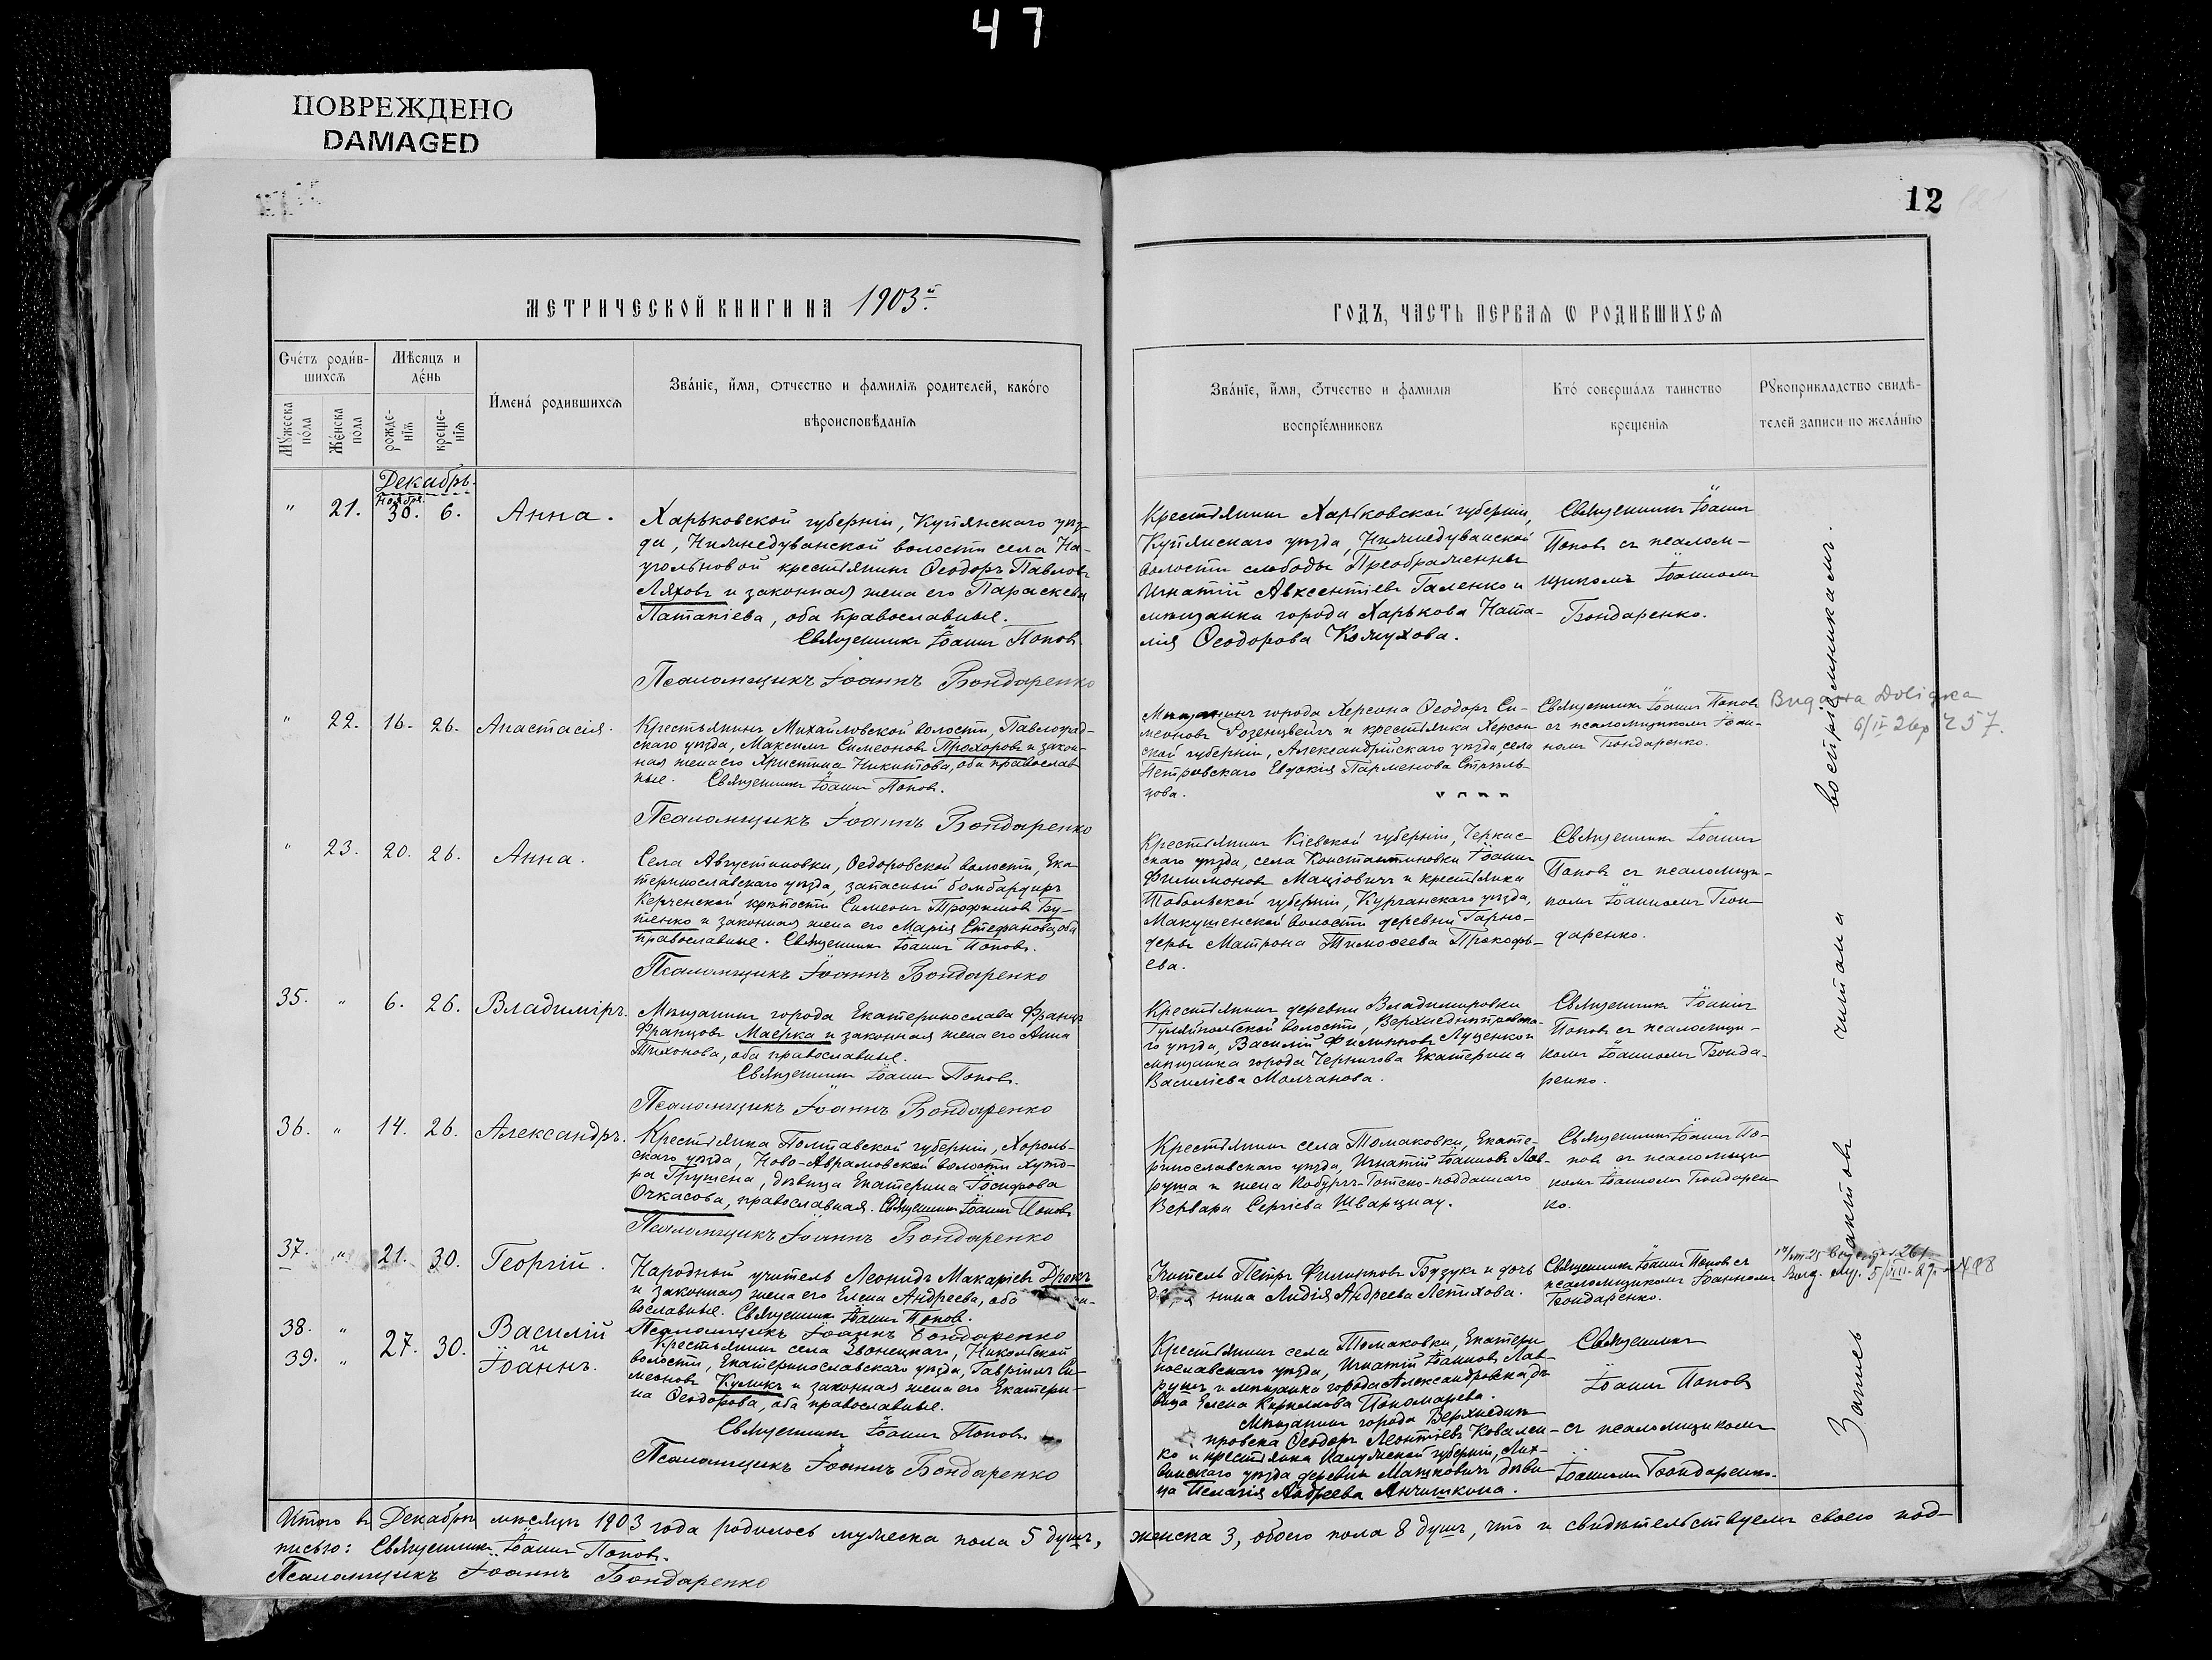 47
ПОВРЕЖДЕНО
DAMAGED
12
МЕТРИЧЕСКОЙ КНИГИ НА 1903й
ГОДЪ, ЧАСТЬ ПЕРВАѦ Ѡ РОДИВШИХСѦ
Счетъ родив-
шихсѧ
Мѣсяцъ и
день
Имена родившихсѧ
Званіе, имя, отчество и фамиліѧ родителей, какого
вѣроисповѣданіѧ
Мужеска
пола
Женска
пола
рожде-
ніѧ
креще-
ніѧ
Званіе, имя, отчество и фамилія
воспріемниковъ
Кто совершалъ таинство
крещеніѧ
Рукоприкладство свидѣ-
телей записи по желанію
Декабрь.
Ноября
" 21. 30. 6. Анна.
Харьковской губерніи, Купянскаго уѣз-
да, Нижнедуванской волости села На-
угольновой крестьянинъ Ѳеодоръ Павловъ
Ляховъ и законная жена его Параскева
Патапіева, оба православные.
Священникъ Іоаннъ Поповъ.
Псаломщикъ Іоаннъ Бондаренко
Крестьянинъ Харьковской губерніи,
Купянскаго уѣзда, Нижнедуванской
волости слободы Преображенны
Игнатій Авксентіевъ Галенко и
мѣщанка города Харькова Ната-
лія Ѳеодорова Кожухова.
Священникъ Іоаннъ
Поповъ съ псалом-
щикомъ Іоанномъ
Бондаренко.
" 22. 16. 26. Анастасія.
Крестьянинъ Михайловской волости, Павлоград-
скаго уѣзда, Максимъ Симеоновъ Прохоровъ и закон-
ная жена его Христина Никитова, оба православ
ные. Священникъ Іоаннъ Поповъ.
Псаломщикъ Іоаннъ Бондаренко
Мѣщанинъ города Херсона Ѳеодоръ Си-
меоновъ Розенцвейгъ и крестьянка Херсон
ской губерніи, Александрійскаго уѣзда, села
Петровскаго Евдокія Парменова Стрѣль-
цова.
Священникъ Іоаннъ Поповъ
съ псаломщикомъ Іоан-
номъ Бондаренко.
Видана Довідка
6/IV 26р 257.
" 23. 20. 26. Анна.
Села Августиновки, Ѳедоровской волости, Ека-
теринославскаго уѣзда, запасный бомбардиръ
Керченской крѣпости Симеонъ Трофимовъ Бу-
тенко и законная жена его Марія Стефанова, оба
православные. Священникъ Іоаннъ Поповъ.
Псаломщикъ Іоаннъ Бондаренко
Крестьянинъ Кіевской губерніи, Черкас-
скаго уѣзда, села Константиновки Іоаннъ
Филимоновъ Маціовичъ и крестьянка
Тобольской губерніи, Курганскаго уѣзда,
Макушенской волости деревни Гарно-
деръ Матрона Тимоѳеева Прокофь-
ева.
Священникъ Іоаннъ
Поповъ съ псаломщи-
комъ Іоанномъ Бон-
даренко.
35. " 6. 26. Владиміръ.
Мѣщанинъ города Екатеринослава Францъ
Францовъ Маерка и законная жена его Анна
Тихонова, оба православные.
Священникъ Іоаннъ Поповъ.
Псаломщикъ Іоаннъ Бондаренко
Крестьянинъ деревни Владимировки
Гуляйпольской волости, Верхнеднѣпровска-
го уѣзда, Василій Филипповъ Луценко и
мѣщанка города Чернигова Екатерина
Василіева Молчанова.
Священникъ Іоаннъ
Поповъ съ псаломщи-
комъ Іоанномъ Бонда-
ренко.
36. " 14. 26. Александръ.
Крестьянка Полтавской губерніи, Хороль-
скаго уѣзда, Ново-Аврамовской волости хуто-
ра Грушена, дѣвица Екатерина Іосифова
Очкасова, православная. Священникъ Іоаннъ Поповъ
Псаломщикъ Іоаннъ Бондаренко
Крестьянинъ села Томаковки, Екате-
ринославскаго уѣзда, Игнатій Іоанновъ Лав-
руша и жена Кобургъ-Готско-подданнаго
Варвара Сергіева Шварцнау.
Священникъ Іоаннъ По-
повъ съ псаломщи-
комъ Іоанномъ Бондарен
ко.
37. " 21. 30. Георгій.
Народный учитель Леонидъ Макаріевъ Дрокъ
и законная жена его Елена Андреева, оба
вославные. Священникъ Іоаннъ Поповъ.
Псаломщикъ Іоаннъ Бондаренко
Учитель Петръ Филипповъ Бузукъ и дочь
нина Лидія Андреева Лепихова.
Священникъ Іоаннъ Поповъ съ
псаломщикомъ Іоанномъ
Бондаренко.
38. "
39. " 27. 30. Василій
и
Іоаннъ.
Крестьянинъ села Звонецкаго, Никольской
волости, Екатеринославскаго уѣзда, Гавріилъ Си-
меоновъ Куликъ и законная жена его Екатери-
на Ѳеодорова, оба православные.
Священникъ Іоаннъ Поповъ.
Псаломщикъ Іоаннъ Бондаренко
Крестьянинъ села Томаковки, Екатери
нославскаго уѣзда, Игнатій Іоанновъ Лав-
руша и мѣщанка города Александровска, дѣ
вица Елена Корнилова Пономарева.
Мѣщанинъ города Верхнеднѣ
провска Ѳеодоръ Леонтіевъ Ковален-
ко и крестьянка Калужской губерніи, Лих-
винскаго уѣзда деревни Машковичъ дѣви
ца Пелагія Андреева Анчишкина.
Священникъ
Іоаннъ Поповъ
съ псаломщикомъ
Іоанномъ Бондаренко.
Запись актовъ читана воспріемникамъ.
Итого въ Декабрѣ мѣсяцѣ 1903 года родилось мужеска пола 5 душъ, женска 3, обоего пола 8 душъ, что и свидѣтельствуемъ своею под-
писью: Священникъ Іоаннъ Поповъ.
Псаломщикъ Іоаннъ Бондаренко